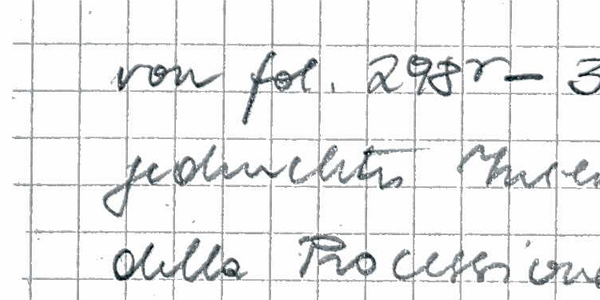 von fol. 298r – 3
gedrucktes
della Processione